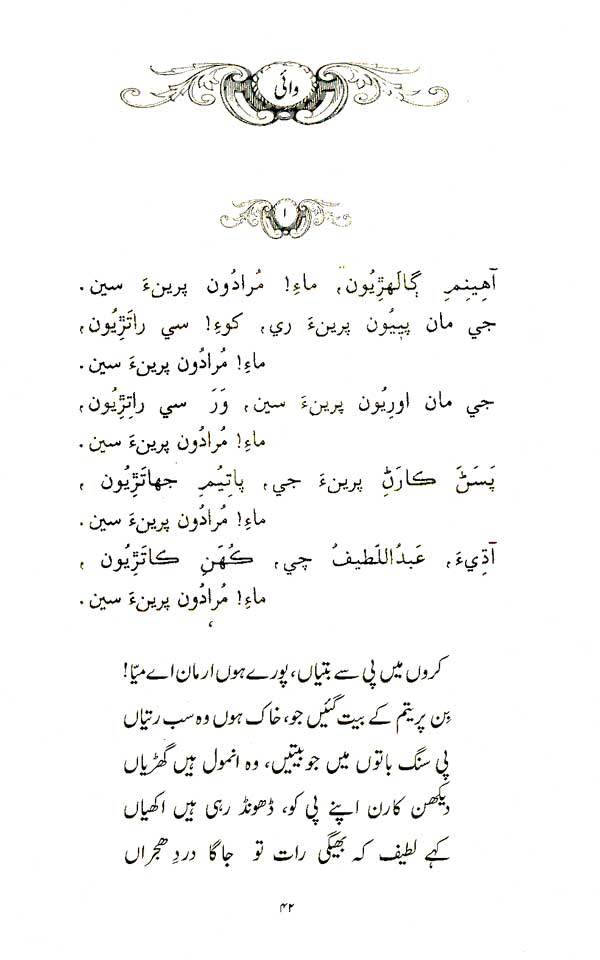 وائي
۱
آهِينِمِ ڳالَهڙِيُون، ماءِ! مُرادُون پرينءَ سين.
جي مان پييُون پرينءَ ري، کوءِ! سي راتَڙِيُون،
ماءِ! مُرادُون پرينءَ سين.
جي مان اورِيُون پرينءَ سين، وَرَ سي راتِڙِيُون،
ماءِ! مُرادُون پرينءَ سين.
پَسَڻَ ڪارَڻِ پرينءَ جي، پاتِيُمِ جهاتَڙِيُون،
ماءِ! مُرادُون پرينءَ سين.
آڌِيءَ، عَبدُاللَطِيفُ چي، ڪُهَنِ ڪاتَڙِيُون،
ماءِ! مُرادُون پرينءَ سين.
کروں میں پی سے بتیاں، پورے ہوں ارمان اے میّا!
بِن پریتم کے بیت گئیں جو، خاک ہوں وہ سب رتیاں
پی سنگ باتوں میں جو بیتیں، وہ انمول ہیں گھڑیاں
دیکھن کارن اپنے پی کو، ڈھونڈ رہی ہیں اکھیاں
کہے لطیف کہ بھیگی رات تو جاگا دردِ ھجراں
۴۲